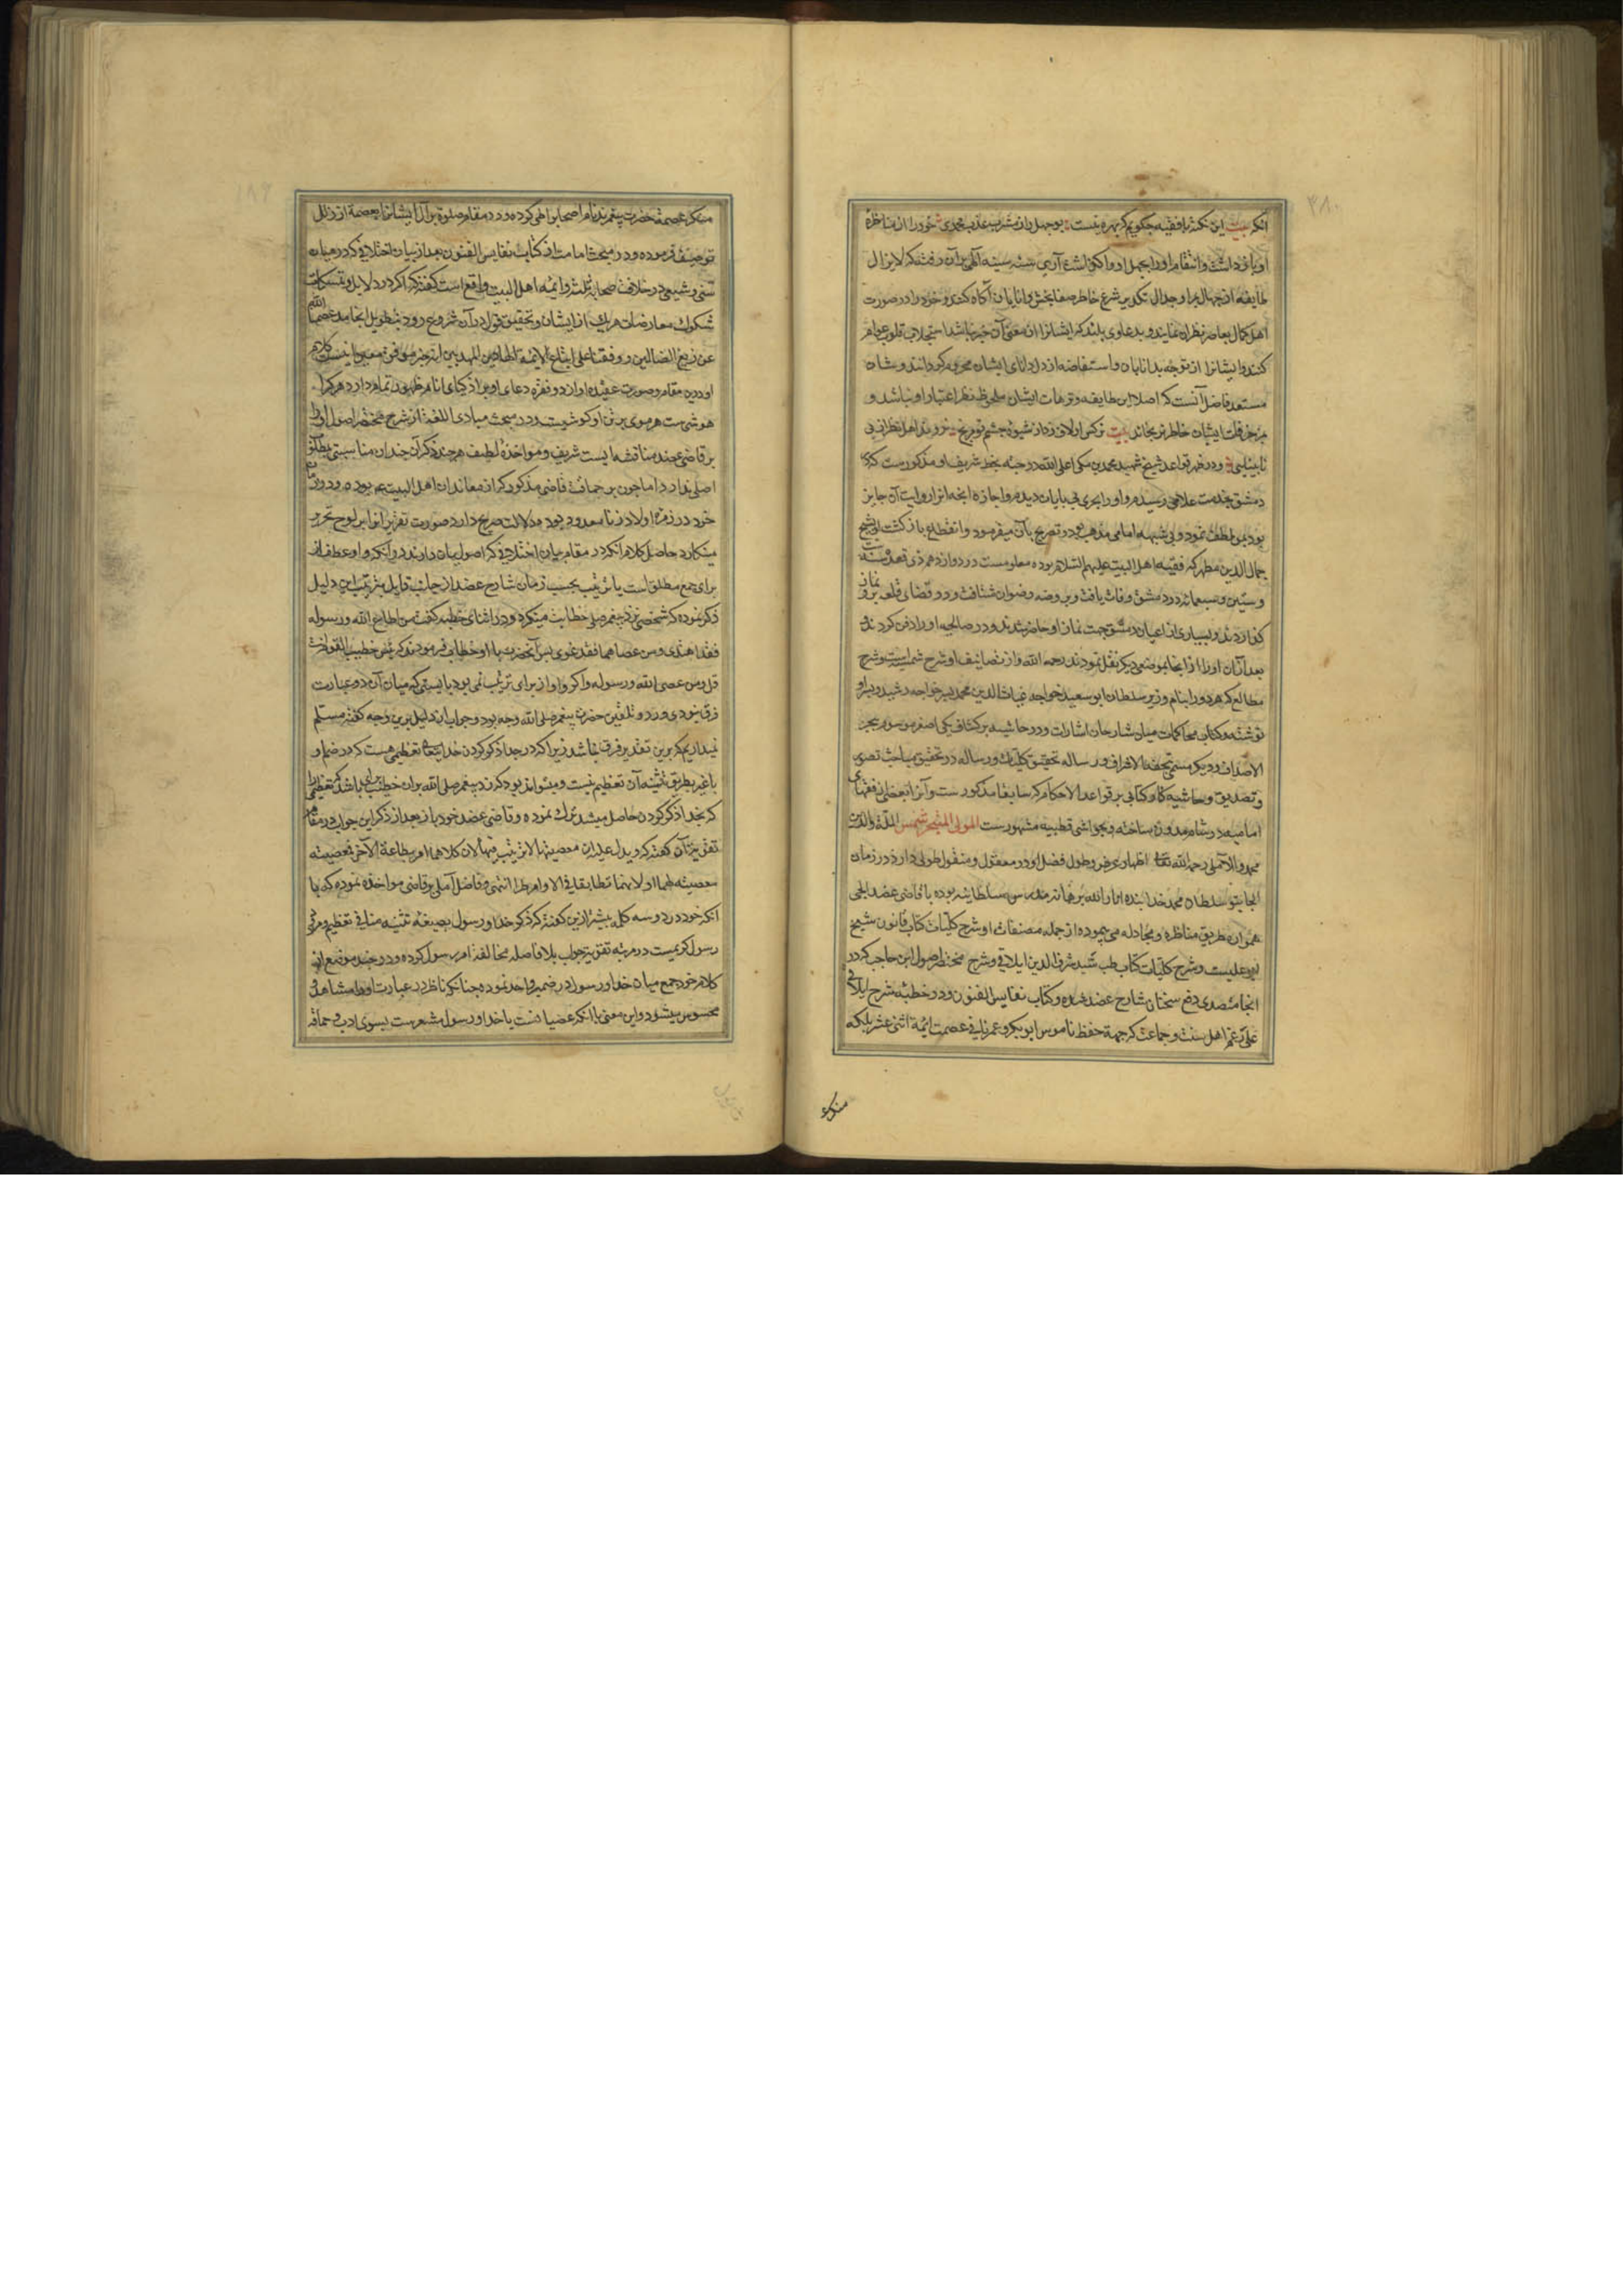 ۳۸۰
انکه بیت این نکته با فقیه چکویم که بهره نیست بوجهل را ز مشرب عذب محمدی خود را از مناظره
او باز داشت و انتقام او را بجهل او واکذاشت آری سنه سینه الهی بران رفته که لایزال
طایفه از جهال مرا و جدال تکدیر شرع خاطر صفابخش دانایان آکاه کنند و خود را در صورت
اهل کمال بعاصر نظران نمایند و بدعاوی بلند که ایشانرا از معنی آن خبر نباشد استجلاب قلوب عوام
کنند و ایشانرا از توجه بدانایان و استفاضه از دل دانای ایشان محروم کردانند و شان
مستعد فاضل آنست که اصلا این طایفه و ترهات ایشان ملحوظ نظر اعتبار او نباشد و
بمزخرفات ایشان خاطر نرنجاند بیت نرکس ار لاف زد از شیوه چشم تو مرنج نروند اهل نظر از پی
نابینایی و در ظهر قواعد شیخ شهید محمد بن مکی اعلی الله درجته بخط شریف او مذکورست که در
دمشق بخدمت علامه رسیدم و او را بحری بی پایان دیدم و اجازه انچه او را روایت آن جایز
بود بمن لطف نمود و بی شبهه امامی مذهب بود و تصریح بآن میفرمود و انقطاع بازکشت او بشیخ
جمال الدین مطهر که فقیه اهل البیت علیهم السلام بوده معلومست در دوازدهم ذی قعده سنه ست
و ستین و سبعمائه در دمشق وفات یافت و بروضه رضوان شتافت و در فضای قلعه برو نماز
کذاردند و بسیاری از اعیان دمشق جهت نماز او حاضر شدند و در صالحیه او را دفن کردند و
بعد از آن او را از انجا بموضعی دیکر نقل نمودند رحمه الله و از تصانیف او شرح شمسیه است و شرح
مطالع که هر دو را بنام وزیر سلطان ابو سعید خواجه غیاث الدین محمد پسر خواجه رشید وزیر او
نوشته و کتاب محاکمات میان شارحان اشارات و دو حاشیه بر کشاف یکی اصغر موسوم ببحر
الاصداف و دیکر مسمی بتحفة الاشراف و رساله تحقیق کلیات و رساله در تحقیق مباحث تصور
و تصدیق و حاشیه کار و کتابی بر قواعد الاحکام که سابقا مذکورست و آنرا بعضی از فقهای
امامیه در شام مدون ساخته و بحواشی قطبیه مشهورست المولی المتبحر شمس الملة والدین
محمد الآملی رحمه الله تعالی اظهار عرض و طول فضل او در معقول و منقول طولی دارد در زمان
الجایتو سلطان محمد خدابنده انار الله برهانه مدرس سلطانیه بوده با قاضی عضد ایجی
همواره طریق مناظره و مجادله می پیموده از جمله مصنفات او شرح کلیات کتاب قانون شیخ
ابو علیست و شرح کلیات کتاب طب سید شرف الدین ایلاقی و شرح مختصر اصول ابن حاجب که در
انجا متصدی دفع سخنان شارح عضد شده و کتاب نفایس الفنون و در خطبه شرح ایلاقی
علی رغم اهل سنت و جماعت که جهة حفظ ناموس ابوبکر و عمر نافی عصمت ائمه اثنی عشر بلکه
منکر
منکر عصمة حضرت پیغمبرند نام اصحاب را طی کرده و در مقام صلوة بر آل ایشانرا بعصمة از زلل
توصیف فرموده و در مبحث امامت از کتاب نفایس الفنون بعد از بیان اختلافی که در میان
سنی و شیعی در خلافت صحابه ثلث و ائمه اهل البیت واقع است کفته که اکر در دلایل و تمسکات
شکوک معارضات هر یک از ایشان و تحقیق قول در آن شروع رود بتطویل انجامد عصمنا الله
عن زیغ الضالین و وفقنا علی اتباع الائمة الهادین المهدیین انه خیر موفق و معین
او درین مقام و صورت عقیده او از دو فقره دعای او بر اذکیای انام ظهور تمام دارد هر کرا
هوشی ست هر موی بر تن او کوشیست و در مبحث مبادی اللغة از شرح مختصر اصول او را
بر قاضی عضد مناقشه ایست شریف و مواخذه لطیف هر چند ذکر آن چندان مناسبتی بمطلب
اصلی ندارد اما چون بر حماقت قاضی مذکور که از معاندان اهل البیت بوده و در زمان
خود در زمره اولاد زنا معدود بود دلالت صریح دارد صورت تقریر انرا بر لوح تحریر
مینکارد حاصل کلام انکه در مقام بیان اختلافی که اصولیان دارند در انکه واو عطف از
برای جمع مطلق است یا ترتیب بحسب زمان شارح عضد از جانب قایل بترتیب این دلیل
ذکر نموده که شخصی نزد پیغمبر صلی خطابت میکرد و در اثنای خطبه کفت من اطاع الله و رسوله
فقد اهتدی و من عصاهما فقد غوی پس آنحضرت با او خطاب فرمودند که بئس خطیب القوم انت
قل و من عصی الله و رسوله و اکر واو از برای ترتیب نمی بود بایستی که میان آن دو عبارت
فرق نبودی و رد و تلقین حضرت پیغمبر صلی الله وجه بود و جواب از دلیل برین وجه کفته مسلم
نمیداریم که برین تقدیر فرق نباشد زیرا که در جدا ذکر کردن خدایتعالی تعظیمی هست که در ضم او
با غیر بطریق تثنیه آن تعظیم نیست و میتواند بود که رد پیغمبر صلی الله بران خطیب برای باشد که تعظیمی را
که بجدا ذکر کردن حاصل میشد ترک نموده و قاضی عضد خود باز بعد از ذکر این جواب در مقام
تقریر آن کفته که و یدل علیه ان معصیتهما لا ترتیب فیها لان کلاهما امر بطاعة الآخر فمعصیته
معصیته لهما او لانهما تطابقا فی الاوامر انتهی و فاضل آملی بر قاضی مواخذه نموده که با
انکه خود در دو سه کلمه پیشتر ازین کفته که ذکر خدا و رسول بصیغه تثنیه منافی تعظیم و مرضی
رسول کریمست در مرتبه تقریر جواب بلا فاصله مخالفة امر رسول کرده و در چند موضع از
کلام خود جمع میان خدا و رسول در ضمیر واحد نموده چنانکه ناظر در عبارت او را مشاهد و
محسوس میشود و این معنی با انکه عصیانست با خدا و رسول مشعرست بسوی ادب و حماقة